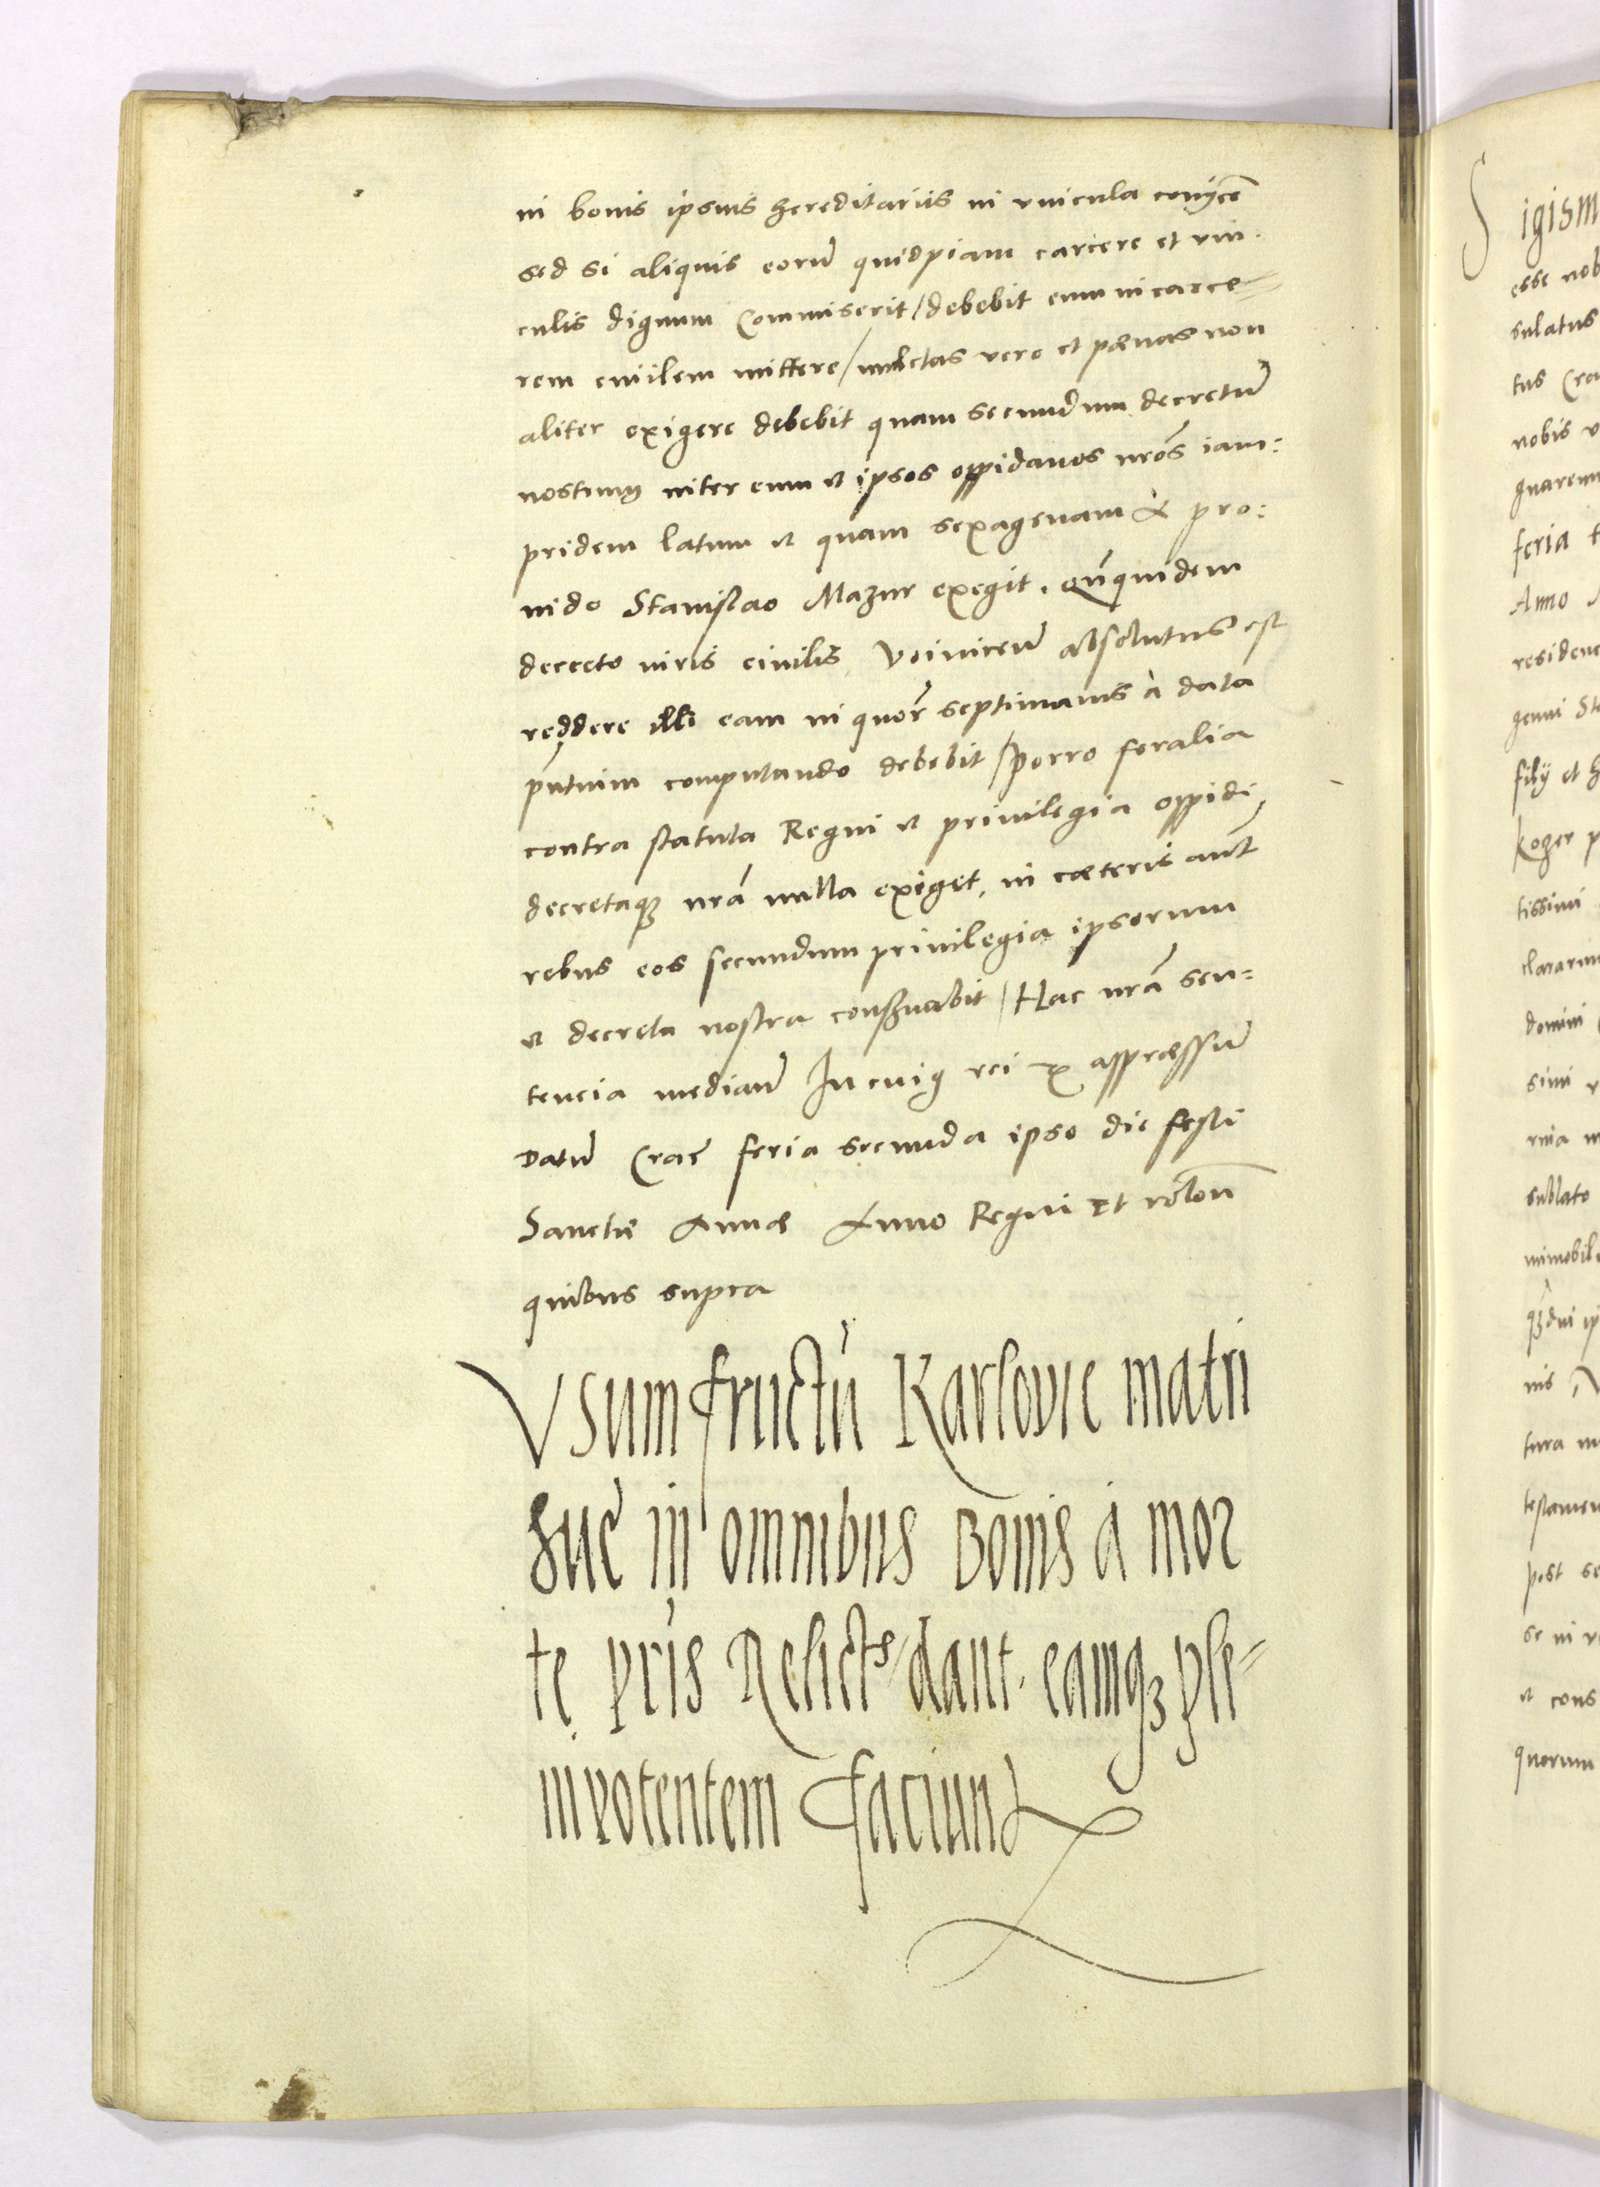 in bonis ipsius hereditariis in vincula conijcẽ
sed si aliquis eorũ quidpiam carcere et vin-
culis dignum commiserit / debebit eum in carce=
rem civilem mittere / mulctas vero et pœnas non
aliter exigere debebit quam secundum decretũ
nostrum inter eum et ipsos oppidanos nr̃os iam:
pridem latum et quam sexagenam à pro:
uido Stanislao Mazur exegit. 
decreto iuris ciuilis absolutus est
reddere illi eam in quor̃ septimanis à data
pñtium computando debebit / Porro foralia
contra statuta Regni et priuilegia oppidi,
decretaqȝ nr̃a nulla exiget, in cæteris aut̃
rebus eos secundum priuilegia ipsorum
et decreta nostra conseruabit / Hac nr̃a sen=
tencia median̄ In cuiꝯ rei appræssum̃
Datũ Crac̃ feria secunda ipso die festi
Sanctæ Annæ Anno Regni et
quibus supra
Vsum fructũ Karlowie matri
suę in omnibus Bonis à mor
te pr̃is Relictꝭ / dant. eamqȝ ple=
nipotentem faciunt
Sigism
esse nob
sulatus
tus Cra
nobis v
feria
Anno
residen
genui St
filij et h
koger p
tissimi
domini
simi
sublato
immobil
tura
testamen
post se
se in
et cons
quorum